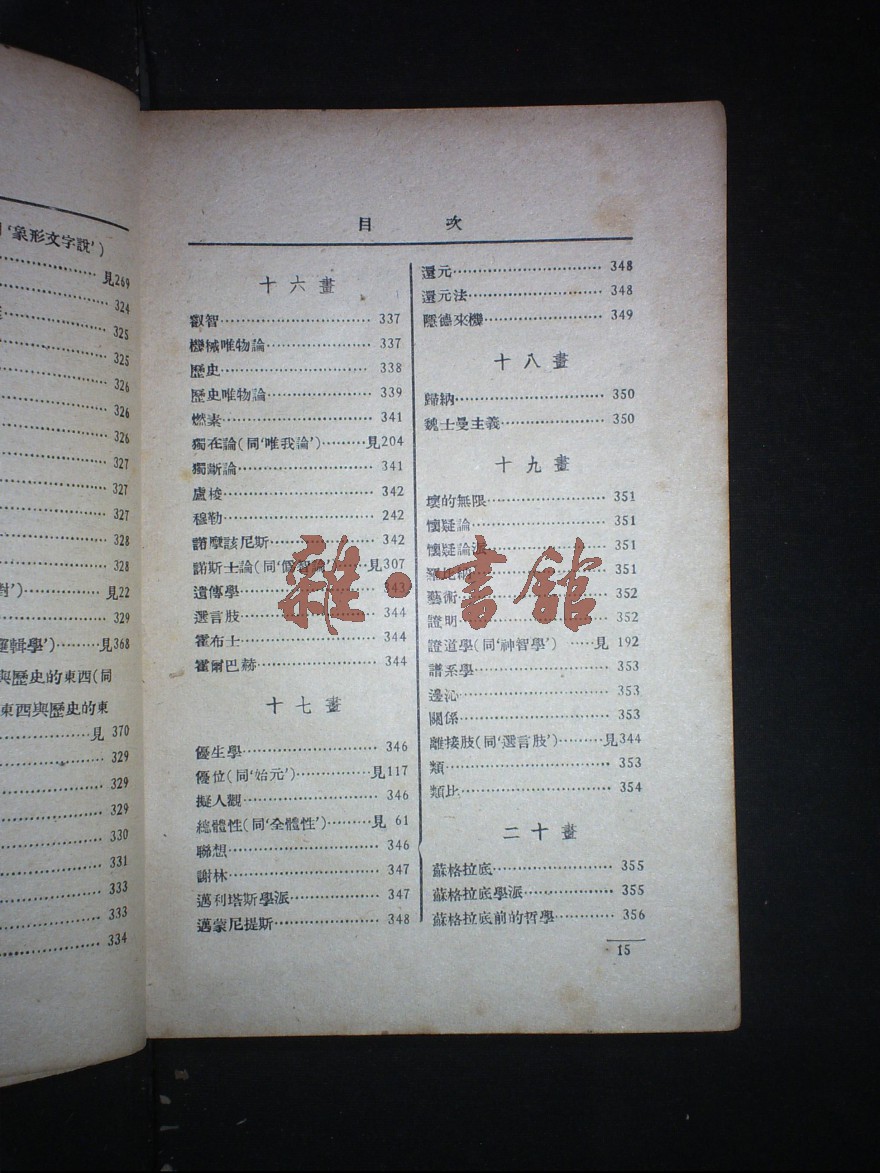 ‘象形文字說’)
見269
324
325
325
326
326
326
327
327
327
328
328
對’)············見22
329
邏輯學’)·········見368
與歷史的東西(同
東西與歷史的東
見 370
329
329
329
330
331
333
333
334
目 次
十六畫
叡智································ 337
機械唯物論························ 337
歷史································ 338
歷史唯物論························ 339
燃素································ 341
獨在論(同‘唯我論’)·········見204
獨斷論····························· 341
盧梭································ 342
穆勒································ 242
諾摩該尼斯························ 342
諾斯士論(同‘僞智論’)······見307
遺傳學····························· 343
選言肢····························· 344
霍布士····························· 344
霍爾巴赫·························· 344
十七畫
優生學····························· 346
優位(同‘始元’)···············見117
擬人觀····························· 346
總體性(同‘全體性’)·········見 61
聯想································ 346
謝林································ 347
邁利塔斯學派····················· 347
邁蒙尼提斯························ 348
還元································ 348
還元法····························· 348
隱德來機·························· 349
十八畫
歸納································ 350
魏士曼主義························ 350
十九畫
壞的無限·························· 351
懷疑論····························· 351
懷疑論派·························· 351
羅比納····························· 351
藝術································ 352
證明································ 352
證道學(同‘神智學’) ·····見 192
譜系學····························· 353
邊沁································ 353
關係································ 353
離接肢(同‘選言肢’)·········見344
類··································· 353
類比································ 354
二十畫
蘇格拉底·························· 355
蘇格拉底學派····················· 355
蘇格拉底前的哲學··············· 356
15
雜·書館